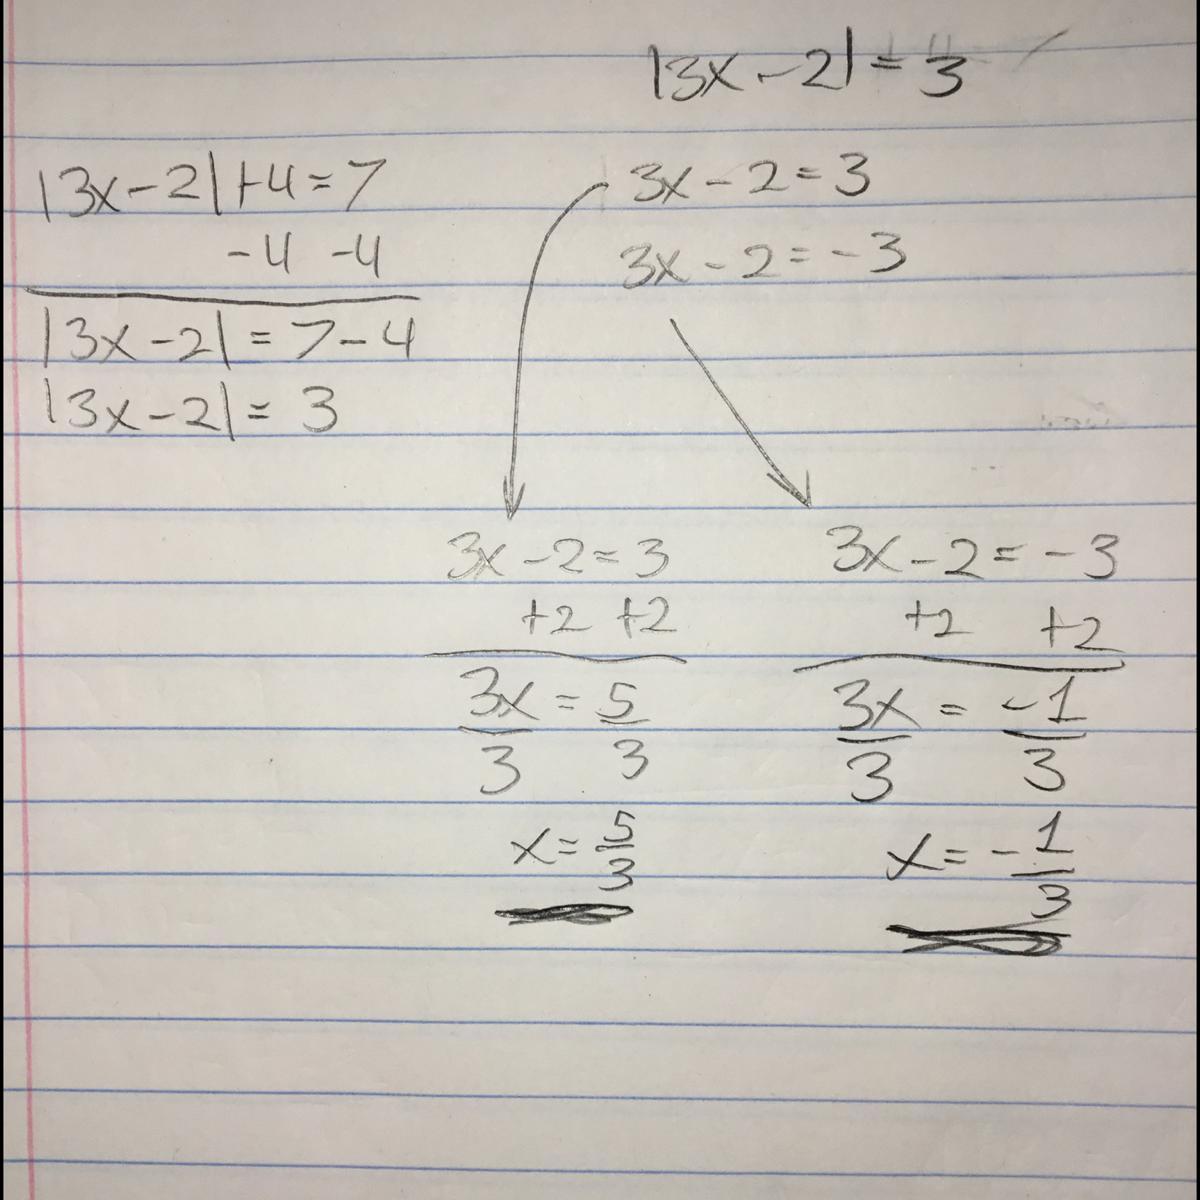 |3x-2|+4=7
-4 -4
|3x-2|=7-4
|3x-2|=3
|3x-2|=3
3x-2=3
3x-2=-3
3x-2=3
+2 +2
3x = 5
3 3
x= 5
3
3x-2=-3
+2 +2
3x = -1
3 3
x=- 1
3